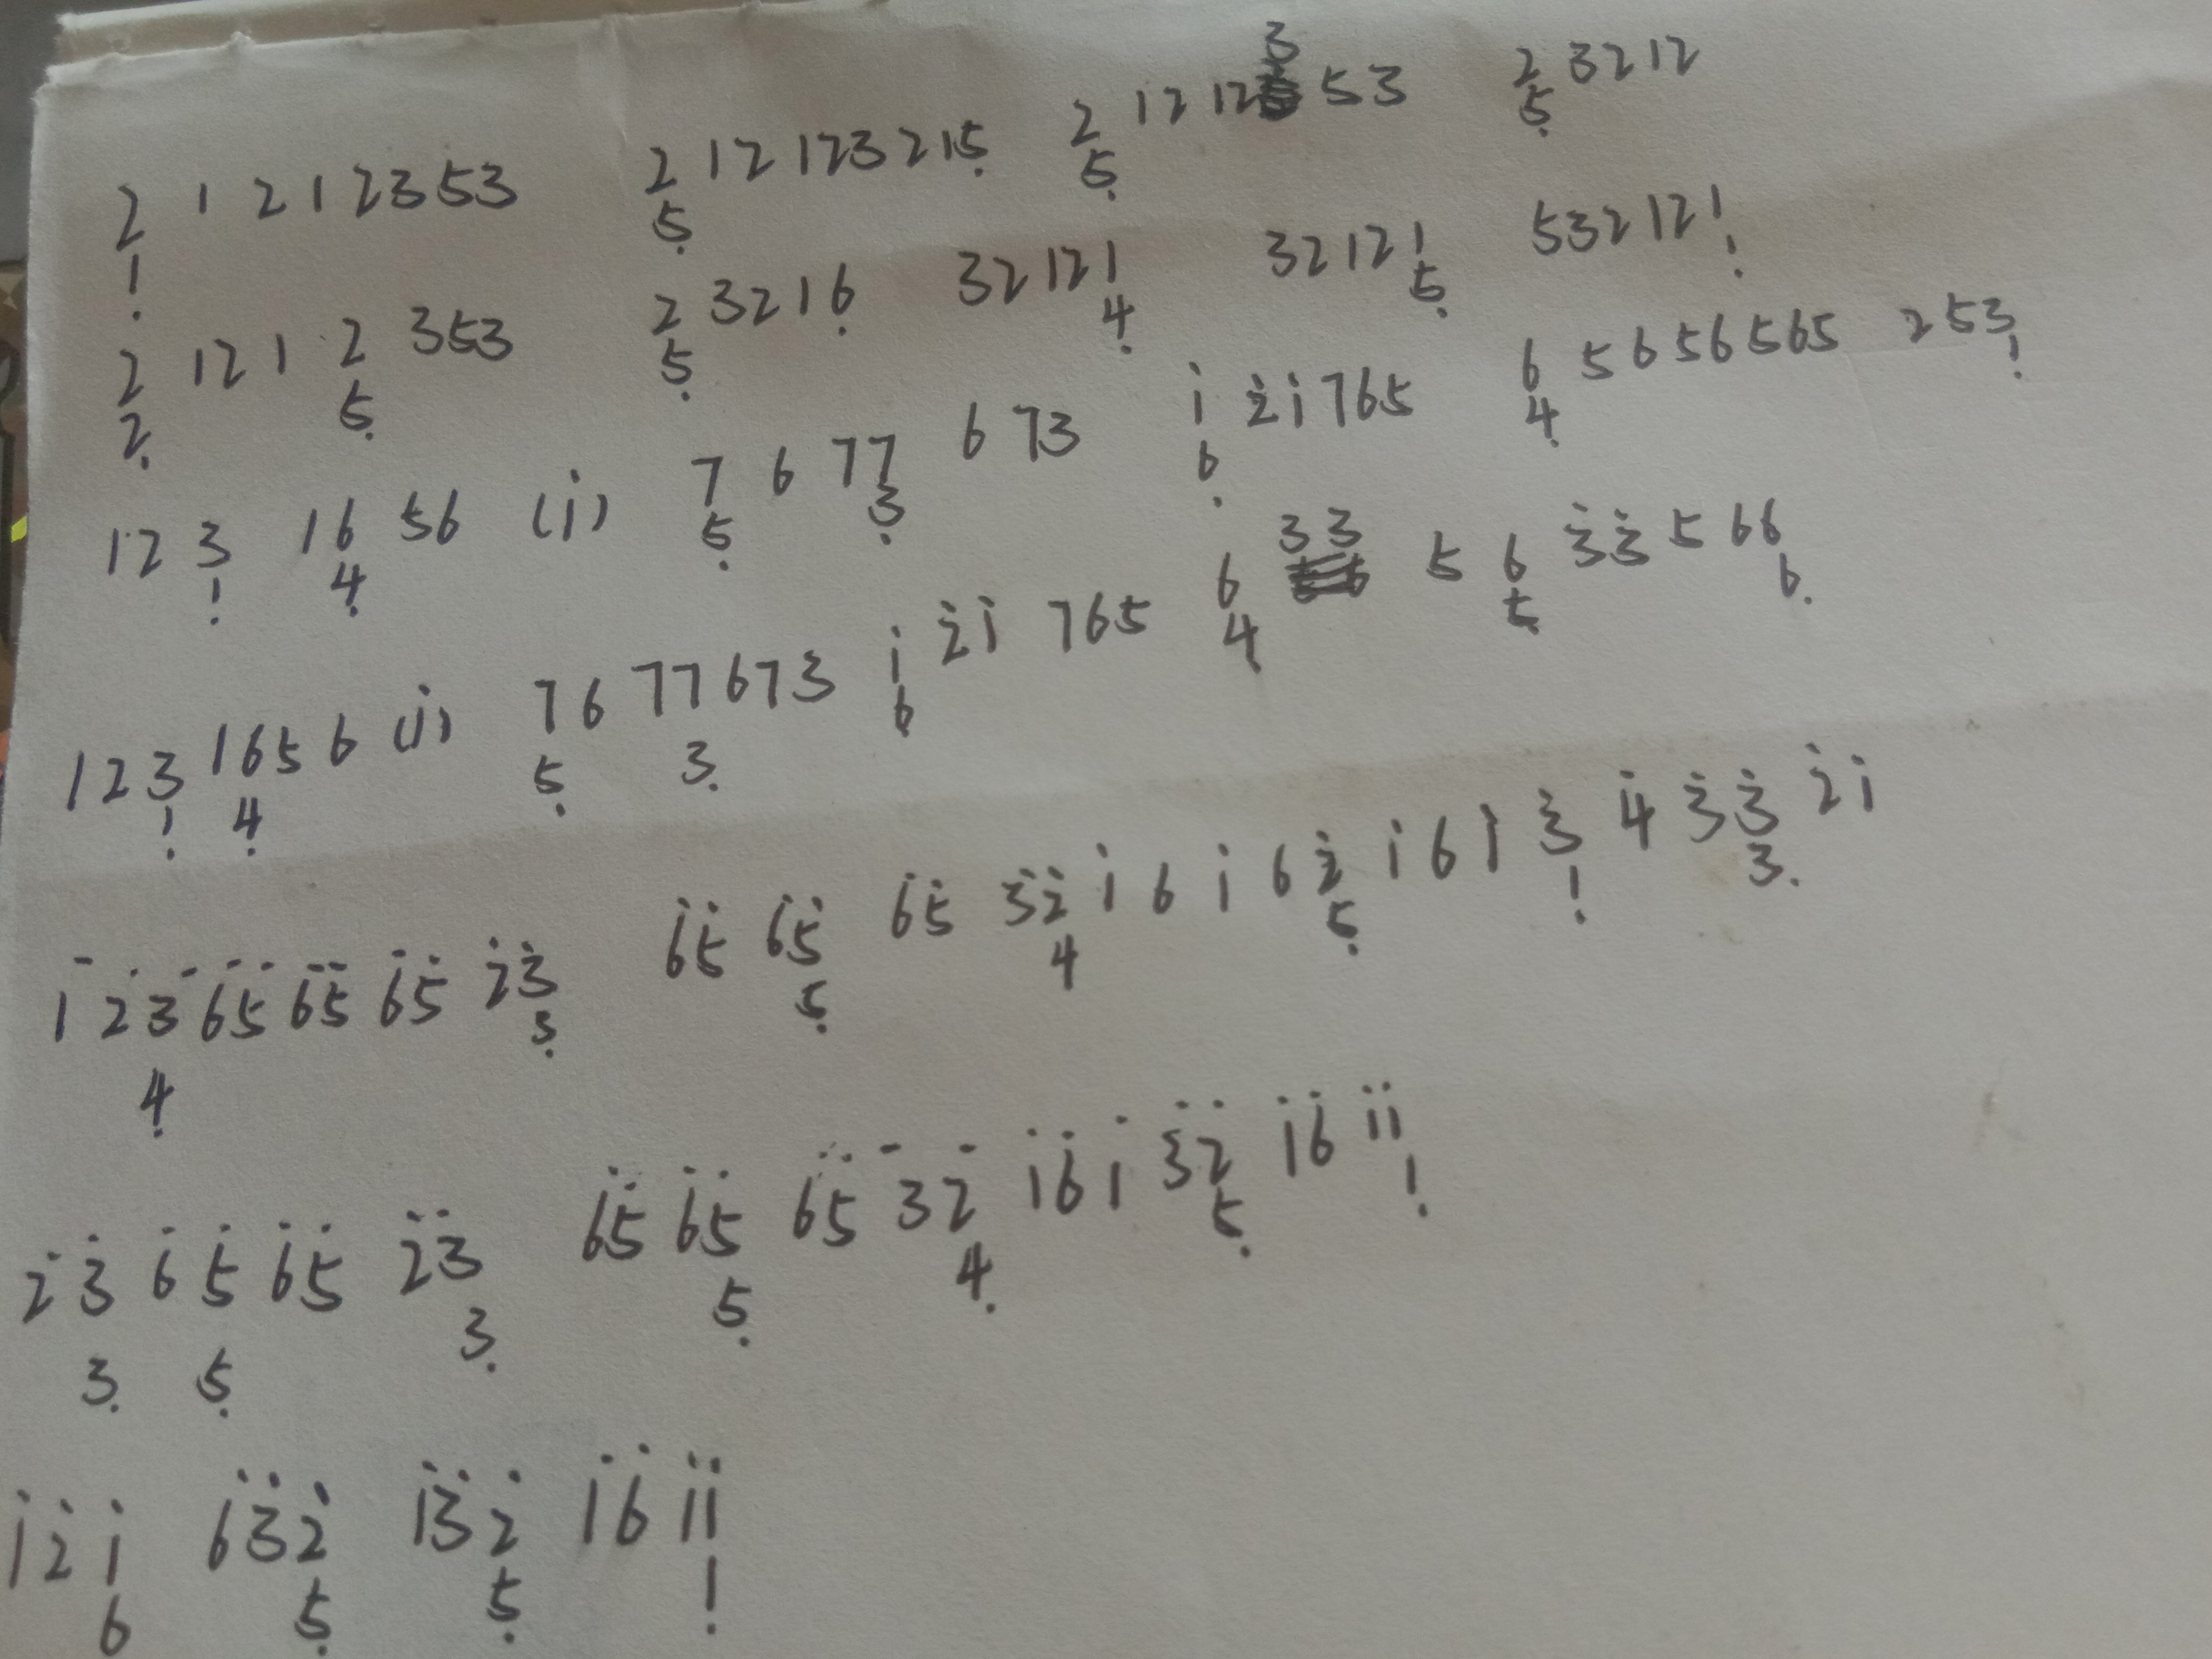 2 1 2 1 2 3 5 3 2 1 2 1 2 3 2 1 5̣ 2 1 2 1 2 3 5 3 2 3 2 1 2
1̣ 5̣ 5̣ 5̣
2 1 2 1 2 3 5 3 2 3 2 1 6̣ 3 2 1 2 1 3 2 1 2 1 5 3 2 1 2 1
2̣ 5̣ 5̣ 4̣ 5̣ 1̣
1 2 3 1 6 5 6 (i̇) 7 6 7 7 6 7 3 i̇ 2̇ i̇ 7 6 5 6 5 6 5 6 5 6 5 2 5 3
1̣ 4̣ 5̣ 3̣ 6̣ 4̣ 1̣
1 2 3 1 6 5 6 (i̇) 7 6 7 7 6 7 3 i̇ 2̇ i̇ 7 6 5 6 3 3 5 6 3̇ 3̇ 5 6 6
1̣ 4̣ 5̣ 3̣ 6̣ 4̣ 5̣ 6̣
1̇ 2̇ 3̇ 6̇ 5̇ 6̇ 5̇ 6̇ 5̇ 2̇ 3̇ 6̇ 5̇ 6̇ 5̇ 6̇ 5̇ 3̇ 2̇ i̇ 6 i̇ 6 2̇ i̇ 6 1̇ 3̇ 4̇ 3̇ 3̇ 2̇ i̇
4̣ 3̣ 5̣ 4 5̣ 1̣ 3̣
2̇ 3̇ 6̇ 5̇ 6̇ 5̇ 2̇ 3̇ 6̇ 5̇ 6̇ 5̇ 6̇ 5̇ 3̇ 2̇ 1̇ 6̇ 1̇ 3̇ 2̇ 1̇ 6̇ 1̇ 1̇
3̣ 5̣ 3̣ 5̣ 4̣ 5̣ 1̣
1̇ 2̇ 1̇ 6̇ 3̇ 2̇ 1̇ 3̇ 2̇ 1̇ 6̇ 1̇ 1̇
6 5̣ 5̣ 1̣